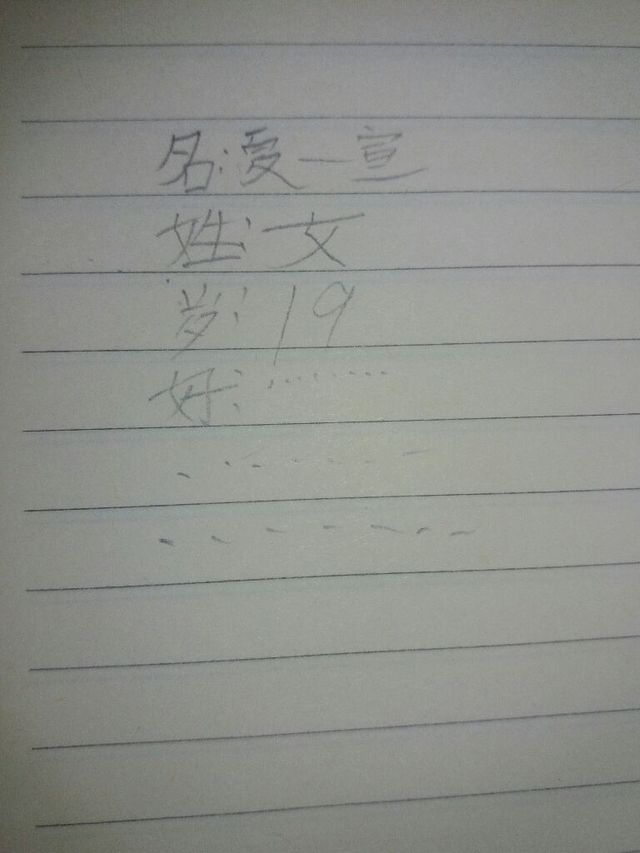 名:爱一宣
姓:女
岁:19
好:………